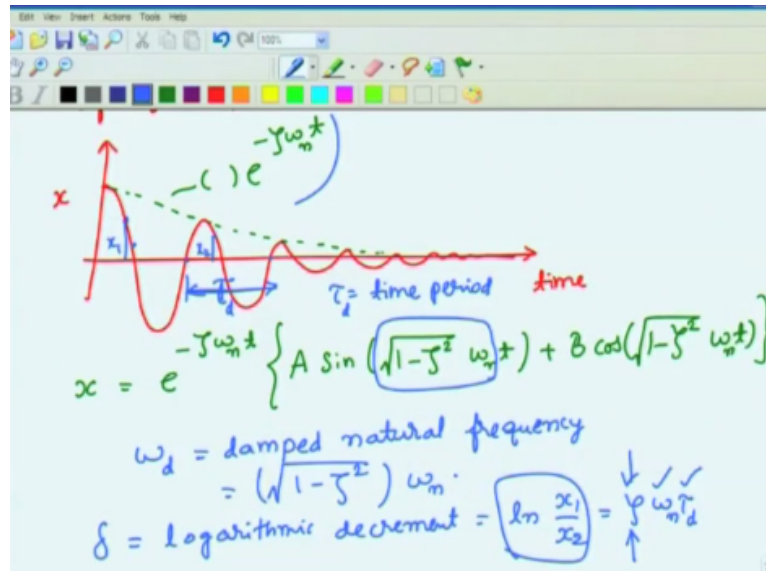 Edit View Insert Actions Tools Help
100%
B I
( ) e^{-ζω_n t}
x
x₁ x₂
τ_d τ_d = time period time
x = e^{-ζω_n t} { A sin (√(1-ζ²) ω_n t) + B cos(√(1-ζ²) ω_n t) }
ω_d = damped natural frequency
= (√(1-ζ²)) ω_n.
δ = logarithmic decrement = ln x₁/x₂ = ζ ω_n τ_d